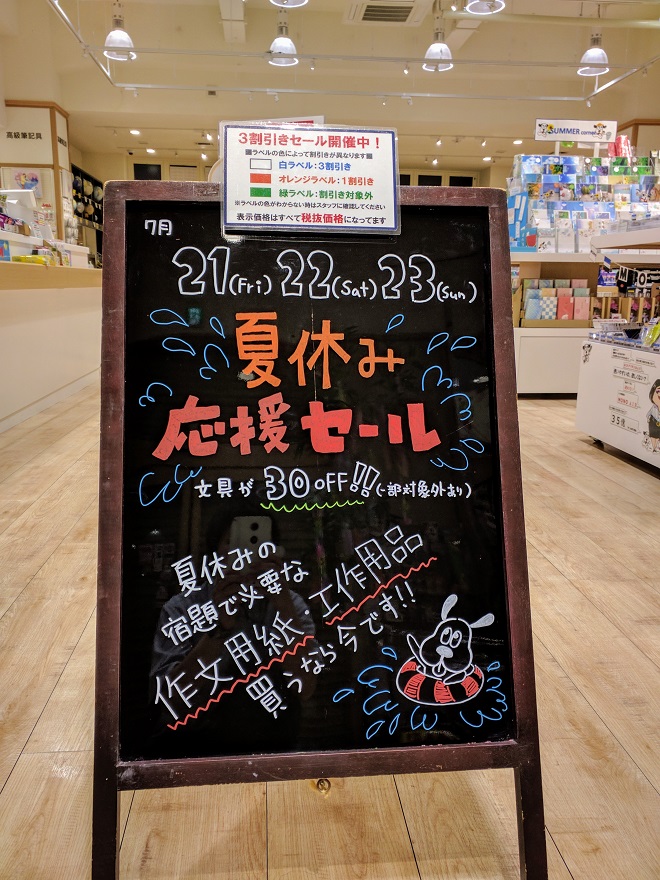 高級筆記具
SUMMER corner
3割引きセール開催中！
■ラベルの色によって割引きが異なります■
白ラベル：3割引き
オレンジラベル：1割引き
緑ラベル：割引き対象外
※ラベルの色がわからない時はスタッフに確認してください
表示価格はすべて税抜価格になってます
7月
21(Fri) 22(Sat) 23(Sun)
夏休み
応援セール
文具が30OFF!!(一部対象外あり)
夏休みの
宿題で必要な
作文用紙・工作用品
買うなら今です!!